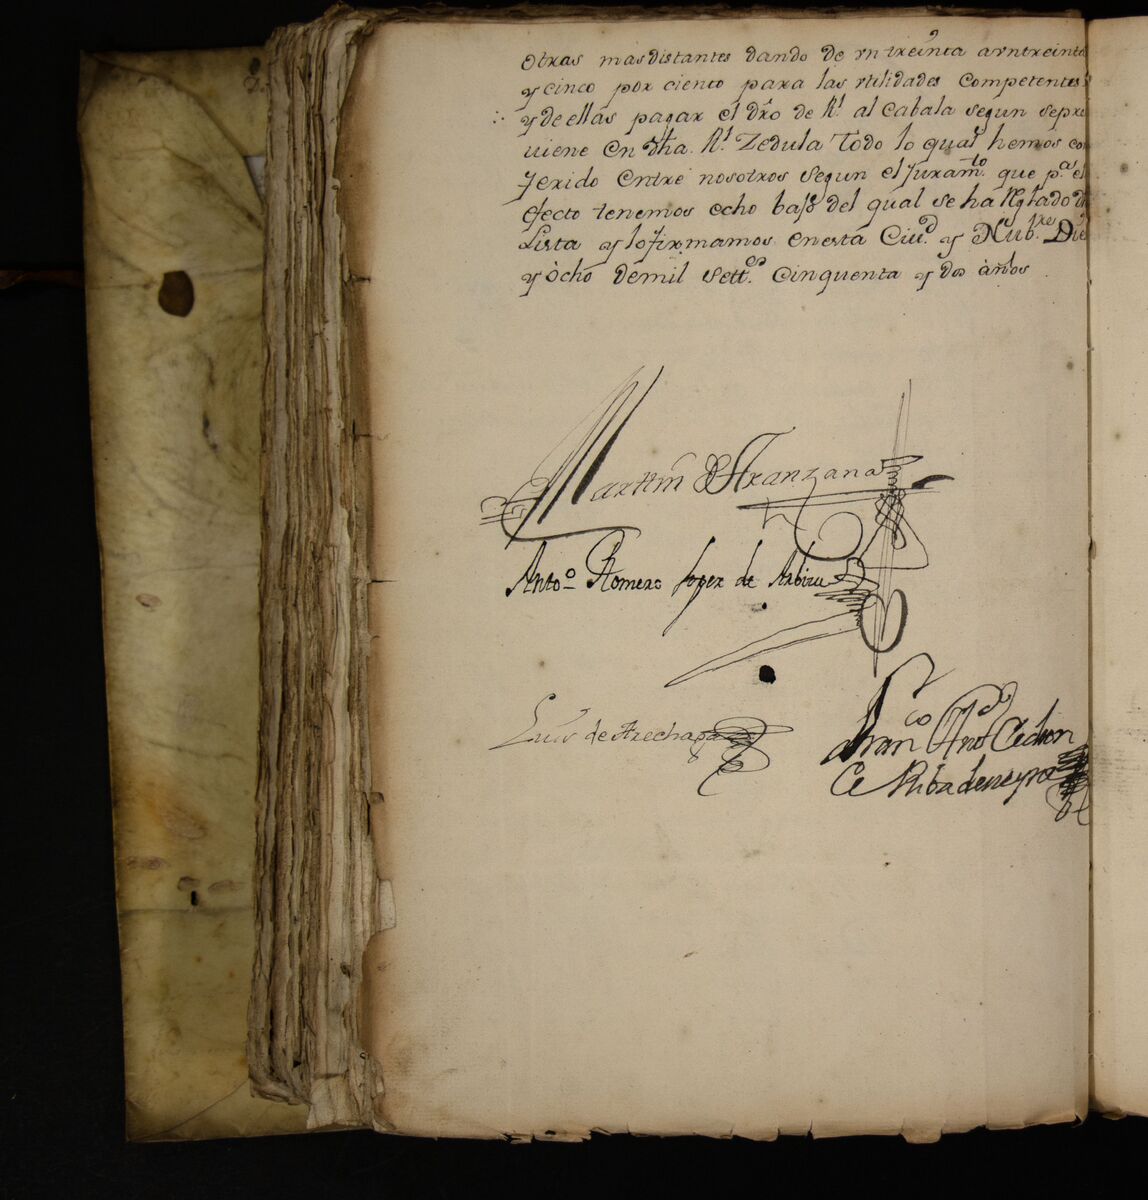 Otras mas distantes dando de vn treinta a vn treinta
y cinco por ciento para las vtilidades Competentes
y de ellas pagar el dr̃o de Rl. al Cabala segun sepre
uiene en dha. Rl. Zedula Todo lo qual hemos con
ferido entre nosotros segun el Juramto. que pa. el
efecto tenemos echo bajo del qual se ha Rglado
Lista y lo firmamos en esta Ciud. y Nubre. Die
y òcho de mil Settos. Cinquenta y dos años
Martin de Aranzana
Anto. Romero Lopez de Arbizu
Luis de Arechaga
Franco. Anto. Cedron
de Ribadeneyra